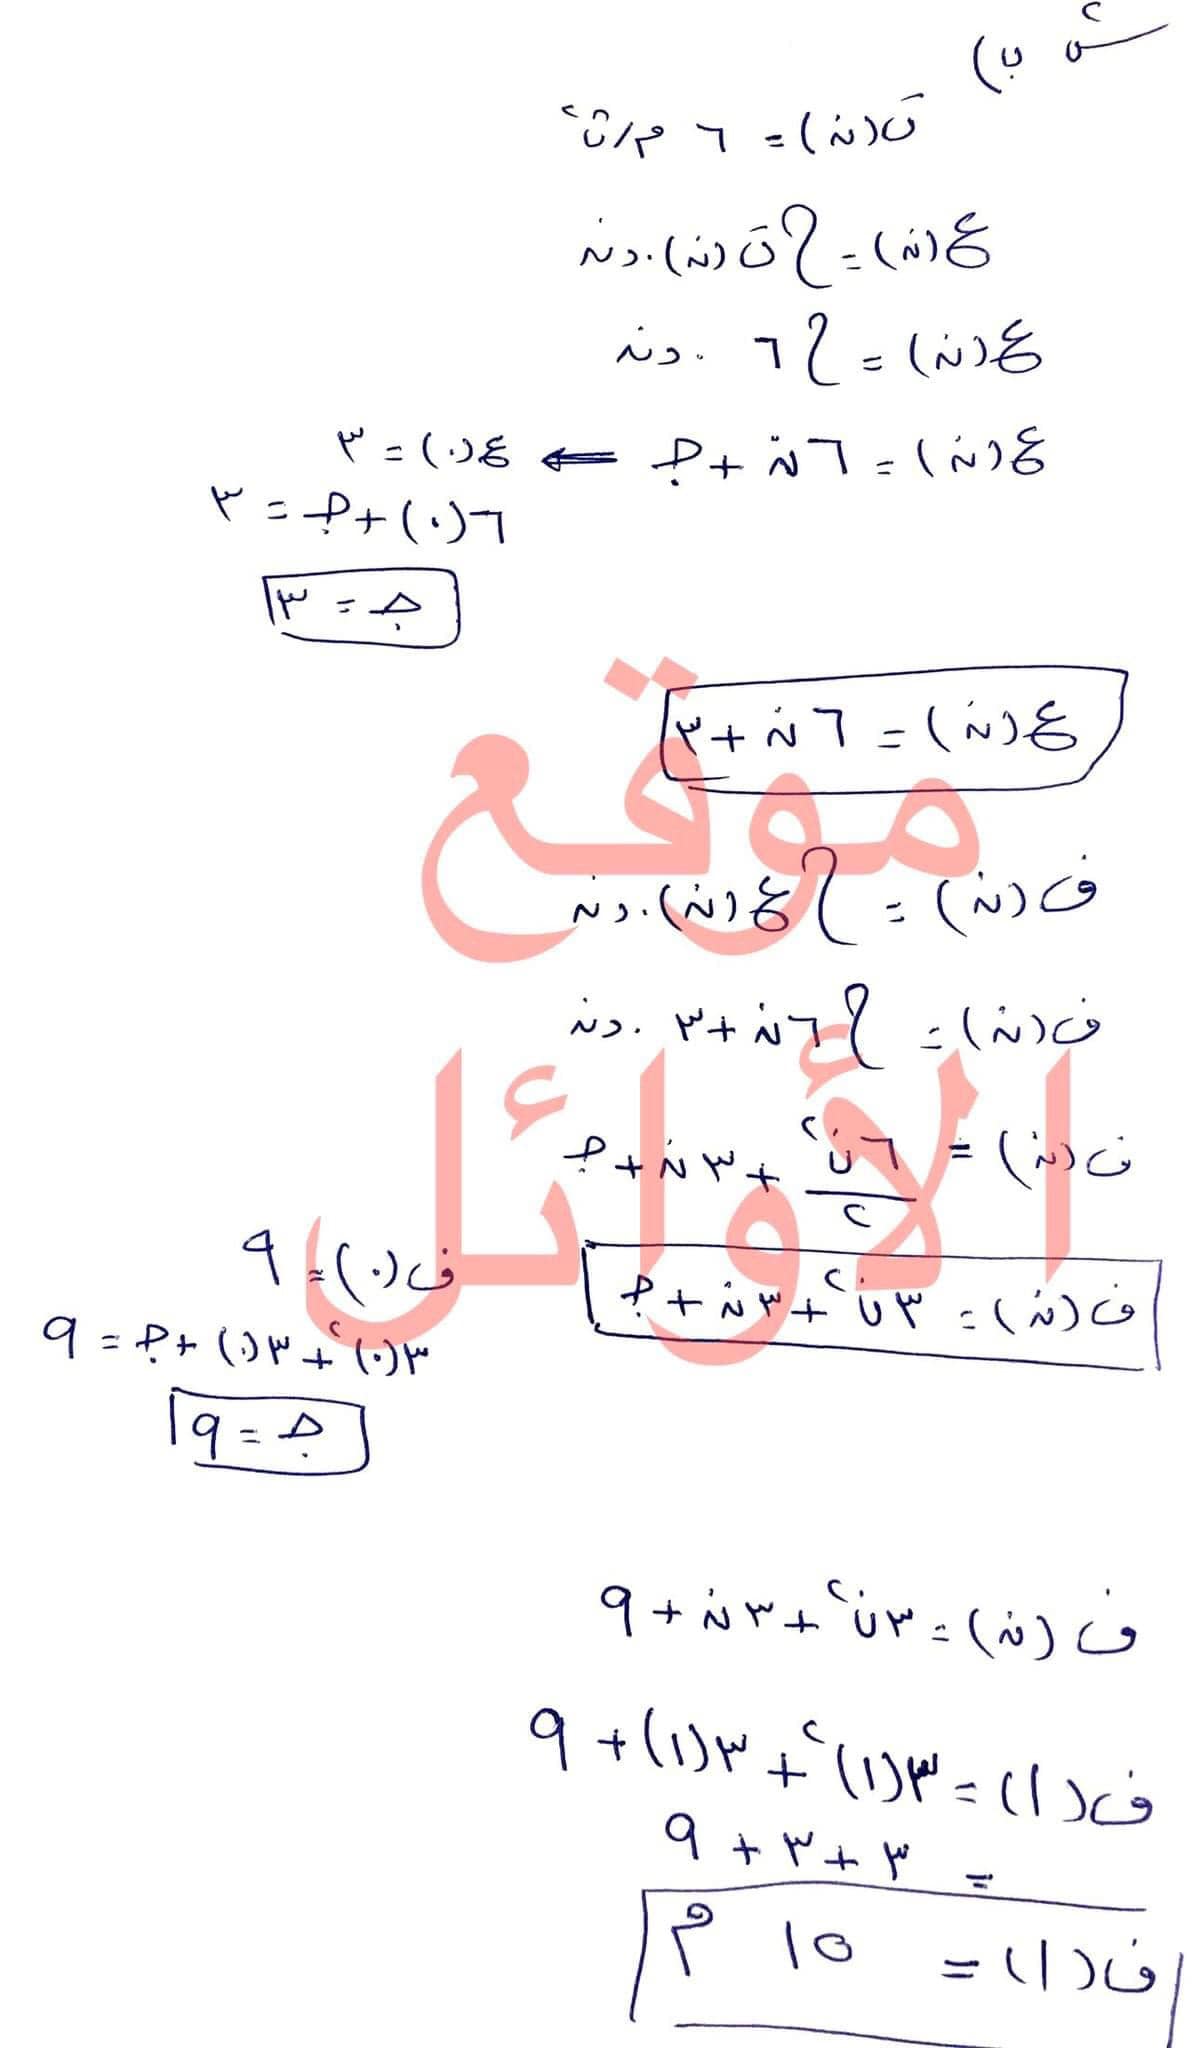 س٢ ب)
ت(ن) = ٦ م/ث٢
ع(ن) = ∫ ت(ن).دن
ع(ن) = ∫ ٦ .دن
ع(ن) = ٦ن + جـ ⇐ ع(٠) = ٣
٦(٠) + جـ = ٣
جـ = ٣
ع(ن) = ٦ن + ٣
موقع
ف(ن) = ∫ ع(ن).دن
ف(ن) = ∫ ٦ن + ٣ .دن
الأوائل
ف(ن) = ٦ن٢/٢ + ٣ن + جـ
ف(ن) = ٣ن٢ + ٣ن + جـ
ف(٠) = ٩
٣(٠)٢ + ٣(٠) + جـ = ٩
جـ = ٩
ف(ن) = ٣ن٢ + ٣ن + ٩
ف(١) = ٣(١)٢ + ٣(١) + ٩
= ٣ + ٣ + ٩
ف(١) = ١٥ م